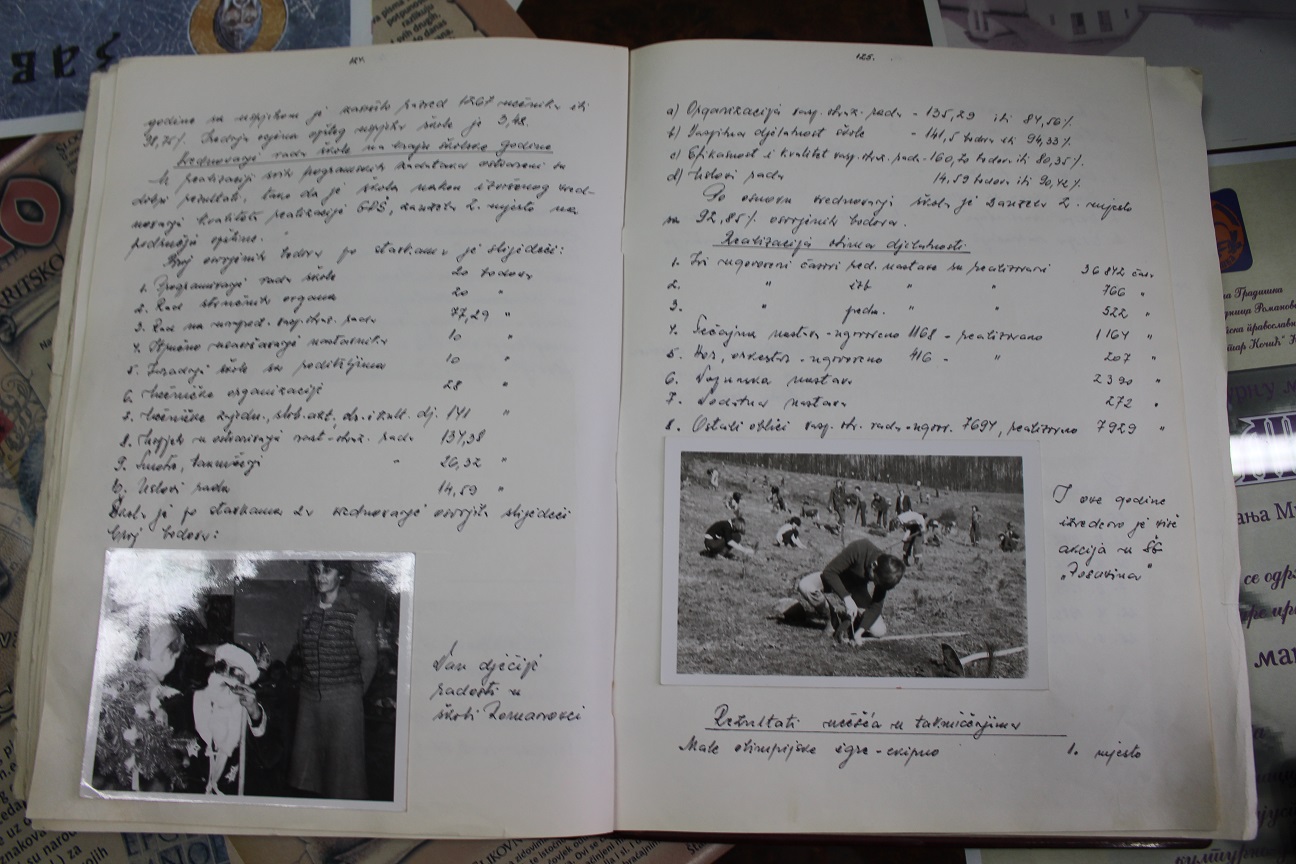 124.
godine sa uspjehom je završilo razred 1267 učenika ili
98,75%. Srednja ocjena opšteg uspjeha škole je 3,48.
Vrednovanje rada škole na kraju školske godine
U realizaciji svih programskih zadataka ostvareni su
dobri rezultati, tako da je škola nakon izvršenog vred-
novanja kvaliteta realizacije GPŠ, zauzela 2. mjesto na
području opštine.
Broj osvojenih bodova po stavkama je slijedeći:
1. Programiranje rada škole 20 bodova
2. Rad stručnih organa 20 "
3. Rad na unapred. vasp. obraz. rada 77,29 "
4. Stručno usavršavanje nastavnika 10 "
5. Saradnja škole sa roditeljima 10 "
6. Učeničke organizacije 28 "
7. Učeničke zajedn., slob. akt., dr. i kult. dj. 141 "
8. Uspjeh u ostvarivanju vasp.-obraz. rada 134,38
9. Smotre, takmičenja " 26,32 "
10. Uslovi rada 14,59 "
Škola je po stavkama za vrednovanje osvojila slijedeći
broj bodova:
Dan dječije
radosti u
školi Romanovci
125.
a) Organizacija vasp. obraz. rada - 135,29 ili 84,56%
b) Vaspitna djelatnost škole - 141,5 bodova ili 94,33%
c) Efikasnost i kvalitet vasp. obr. rada - 160,20 bodova ili 80,35%
d) Uslovi rada 14,59 bodova ili 90,42%
Po osnovu vrednovanja škola je zauzela 2. mjesto
sa 92,85% osvojenih bodova.
Realizacija obima djelatnosti
1. Svi ugovoreni časovi red. nastave su realizovani 36 842 čas.
2. " izb " " 766 "
3. " " " 522 "
4. Tečajna nastava - ugovoreno 1168 - realizovano 1164 "
5. Hor, orkestar - ugovoreno 416 - " 207 "
6. Dopunska nastava 2390 "
7. Dodatna nastava 272 "
8. Ostali oblici vasp. obr. rada - ugov. 7694, realizovano 7929 "
I ove godine
izvedeno je više
akcija u ŠG
"Jasavina"
Rezultati učešća u takmičenjima
Male olimpijske igre - ekipno 1. mjesto